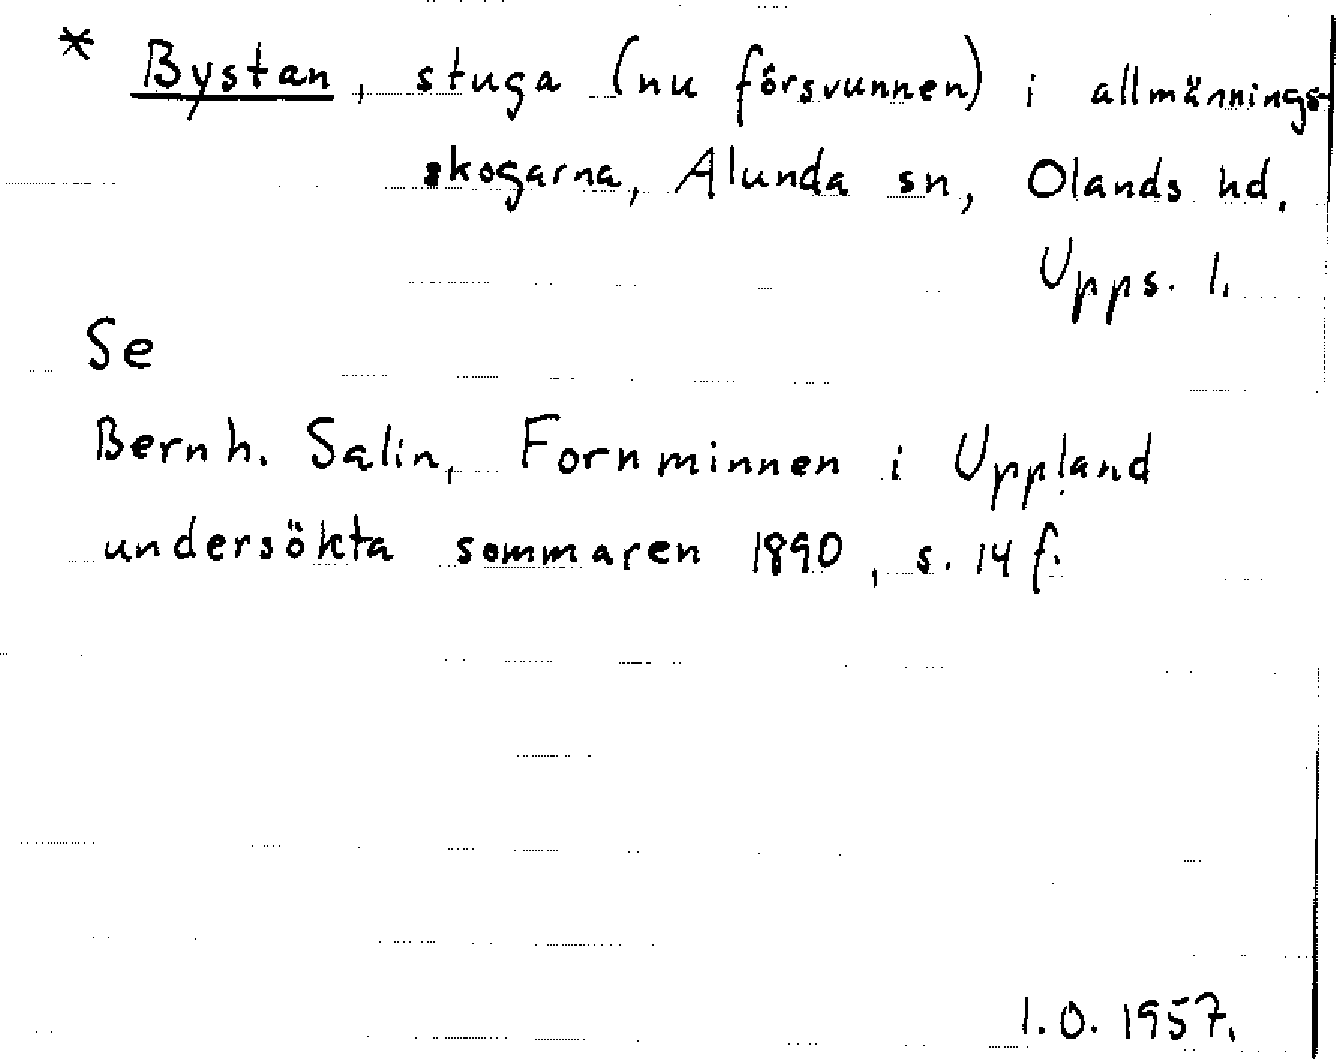 * Bystan, stuga (nu försvunnen) i allmännings-
skogarna, Alunda sn, Olands hd.
Upps. l.
Se
Bernh. Salin, Fornminnen i Uppland
undersökta sommaren 1890, s. 14 f.
I.O. 1957.